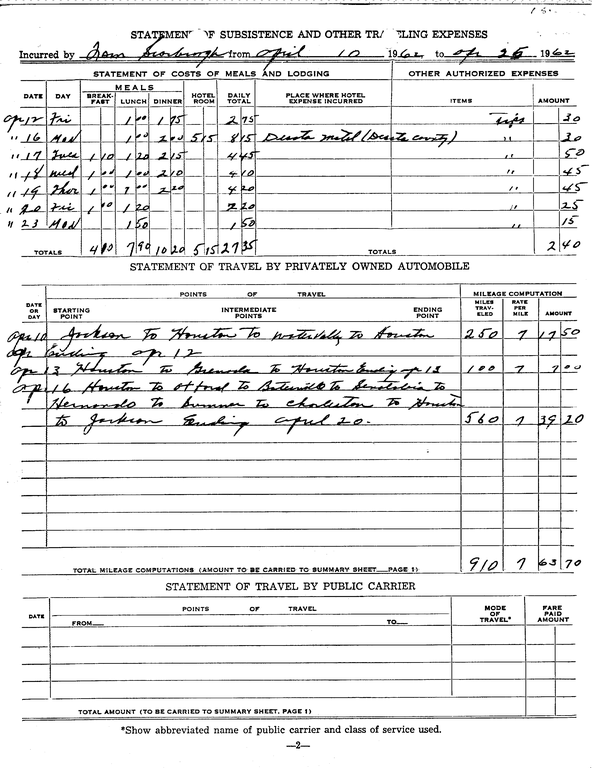 STATEMENT OF SUBSISTENCE AND OTHER TRA ELING EXPENSES
Incurred by Tom Scarbrough from April 10 1962 to Apr 25 1962
STATEMENT OF COSTS OF MEALS AND LODGING OTHER AUTHORIZED EXPENSES
DATE DAY MEALS BREAK-FAST LUNCH DINNER HOTEL ROOM DAILY TOTAL PLACE WHERE HOTEL EXPENSE INCURRED ITEMS AMOUNT
Apr 12 Fri 1 00 1 75 2 75 tips 30
" 16 Mon 1 00 2 00 5 15 8 15 Desoto motel (Desoto county) " 30
" 17 Tues 1 10 1 20 2 15 4 45 " 50
" 18 Wed 1 00 1 00 2 10 4 10 " 45
" 19 Thur 1 00 1 00 2 20 4 20 " 45
" 20 Fri 1 00 1 20 2 20 " 25
" 23 Mon 1 50 1 50 " 15
TOTALS 4 10 7 90 10 20 5 15 27 35 TOTALS 2 40
STATEMENT OF TRAVEL BY PRIVATELY OWNED AUTOMOBILE
DATE OR DAY POINTS OF TRAVEL STARTING POINT INTERMEDIATE POINTS ENDING POINT MILEAGE COMPUTATION MILES TRAV-ELED RATE PER MILE AMOUNT
Apr 10 Jackson to Houston to watervally to Houston 250 7 17 50
Apr Ending Apr 12
Apr 13 Houston to Grenada to Houston Ending Apr 13 100 7 7 00
Apr 16 Houston to Oxford to Batesville to Senatobia to
Hernando to Sumner to Charleston to Houston
to Jackson Ending April 20. 560 7 39 20
TOTAL MILEAGE COMPUTATIONS (AMOUNT TO BE CARRIED TO SUMMARY SHEET PAGE 1) 910 7 63 70
STATEMENT OF TRAVEL BY PUBLIC CARRIER
DATE POINTS OF TRAVEL FROM TO MODE OF TRAVEL* FARE PAID AMOUNT
TOTAL AMOUNT (TO BE CARRIED TO SUMMARY SHEET, PAGE 1)
*Show abbreviated name of public carrier and class of service used.
—2—